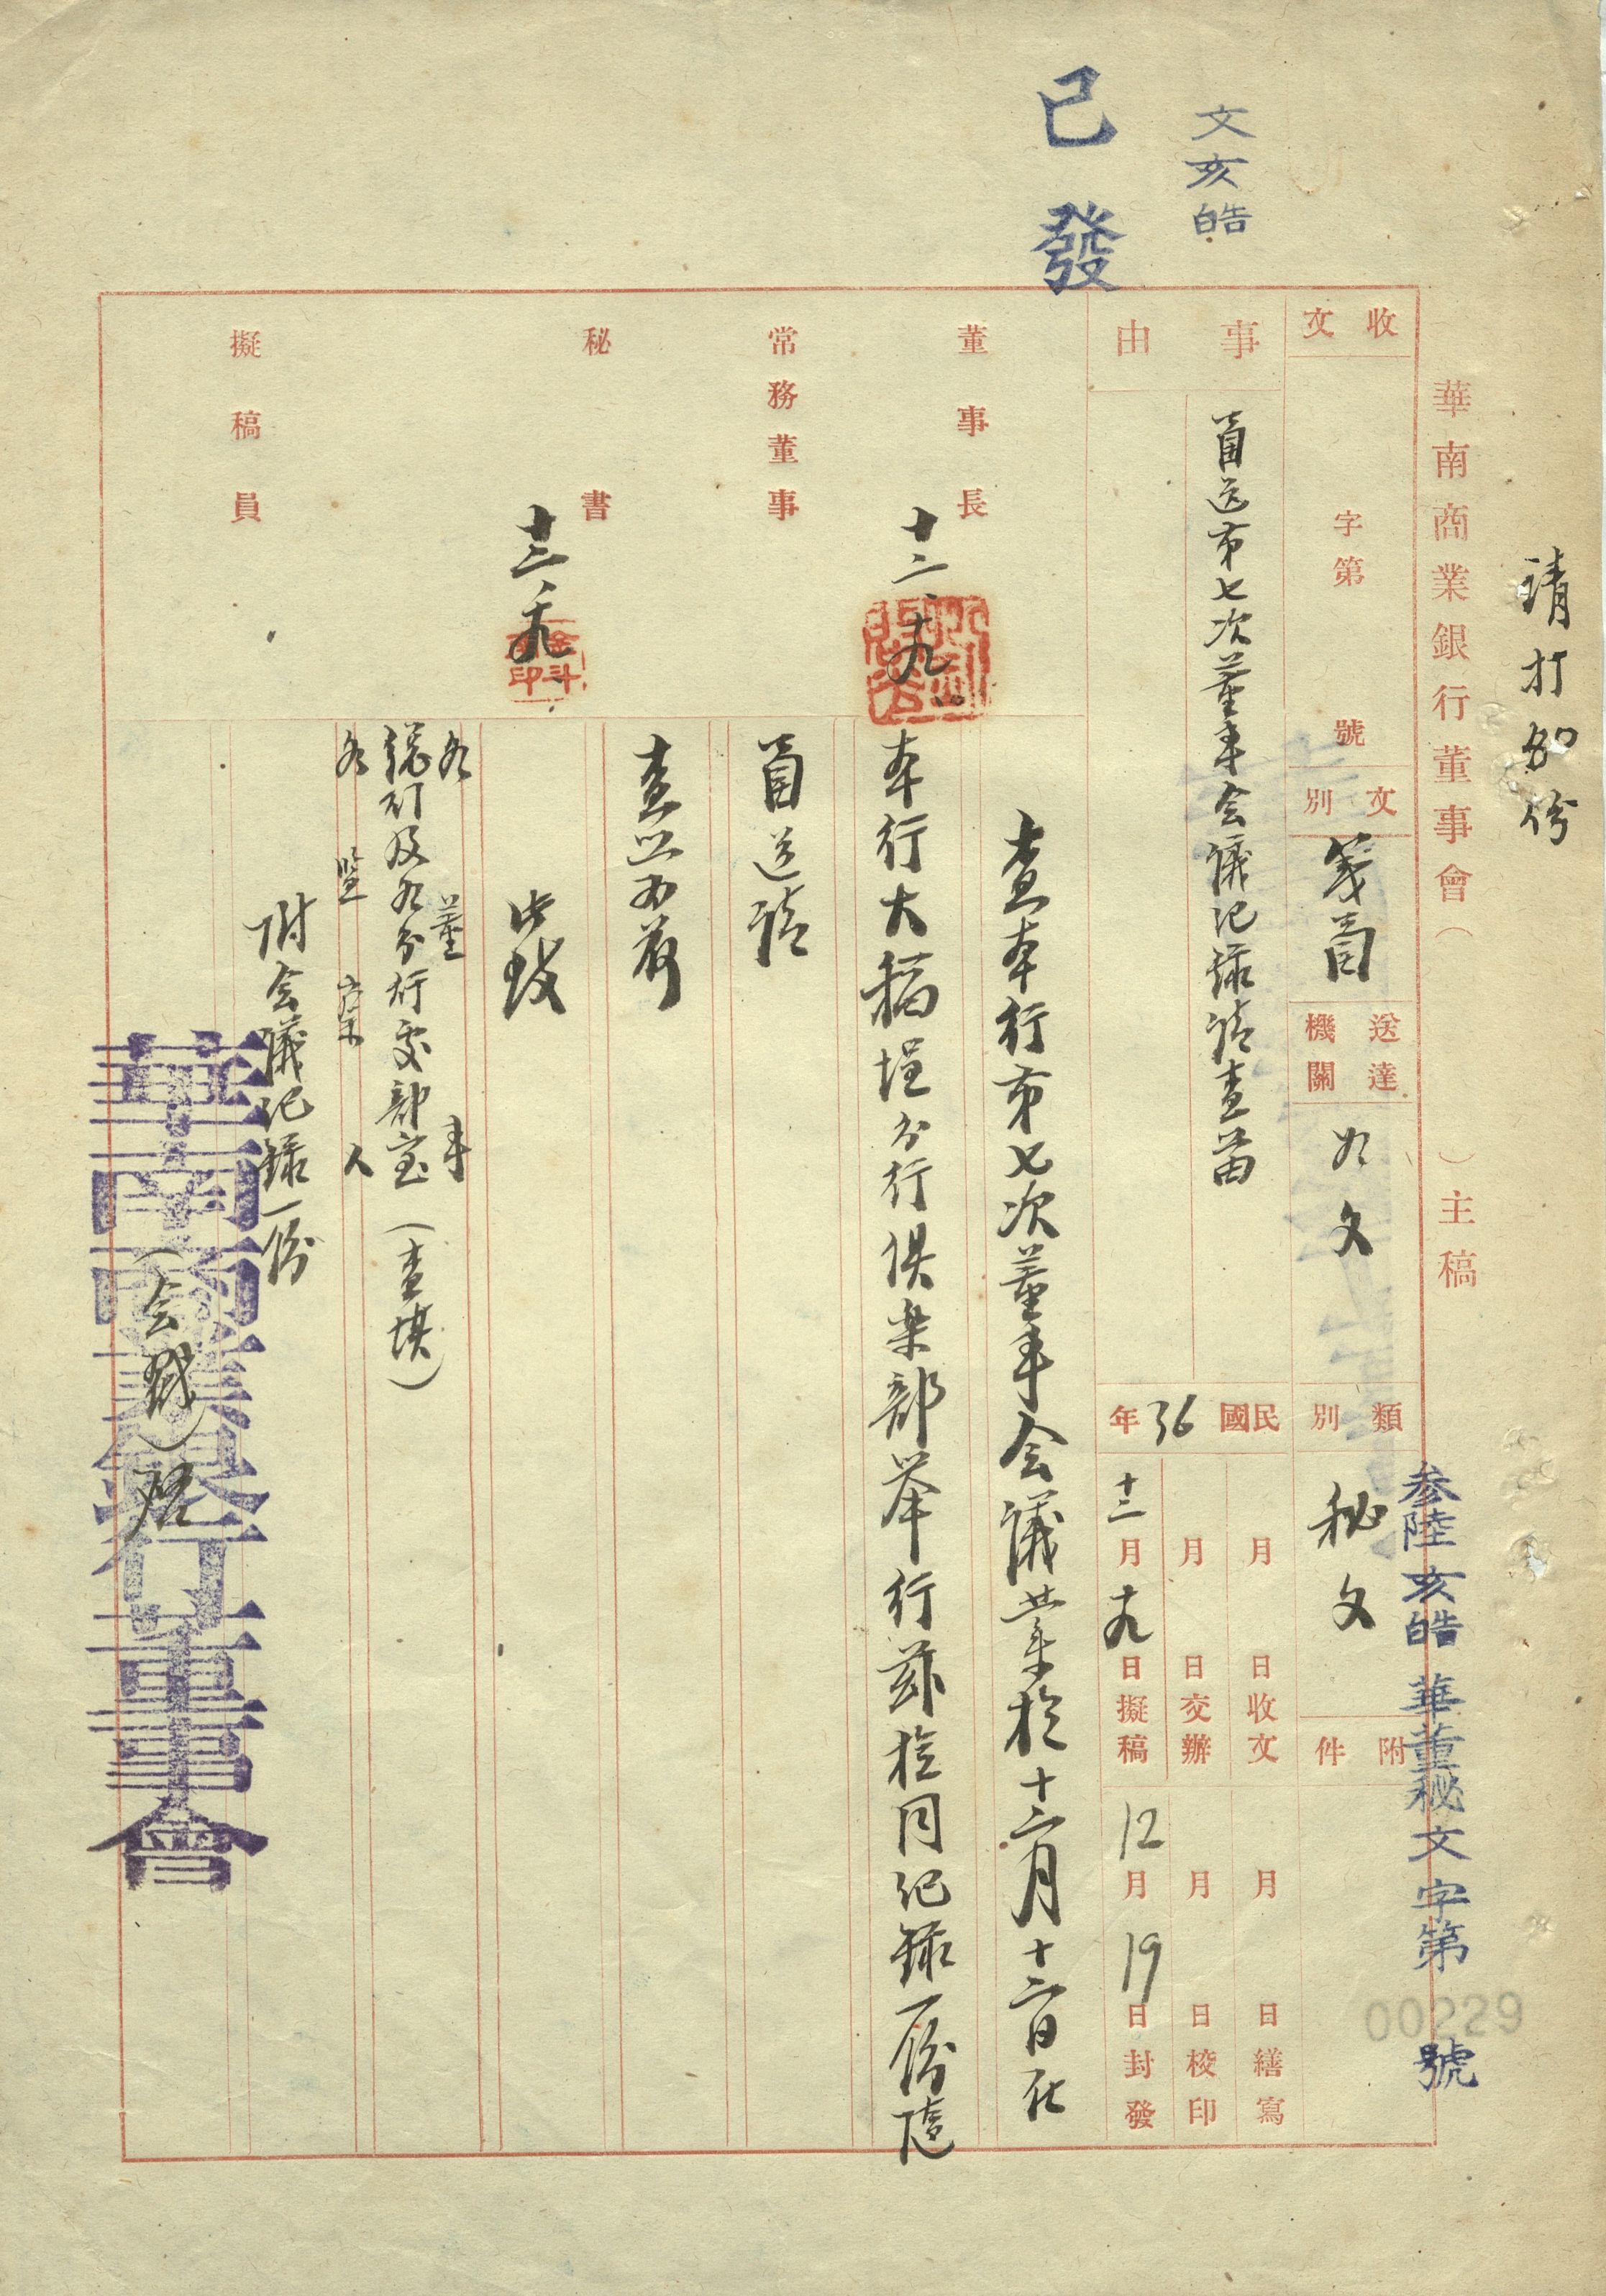 請打80份
華南商業銀行董事會（　　）主稿
參陸亥皓華董秘文字第00229號
文亥皓
已發
收文　字第　號
文別　箋函
送達機關　如文
類別　秘文
附件
事由　函送第七次董事会議记録請查照
民國36年
月　日收文
月　日交辦
十二月十九日擬稿
月　日繕寫
月　日校印
12月19日封發
董事長　十二、十九
常務董事
秘書　十二、十九
擬稿員
查本行第七次董事会議業於十二月十二日在
本行大稻埕分行俱楽部举行兹檢同记録一份隨
函送請
查照為荷
此致
各董事
總行及各分行處部室（查填）
各監察人
附会議记録一份
華南商業銀行董事會
（会戳）啓